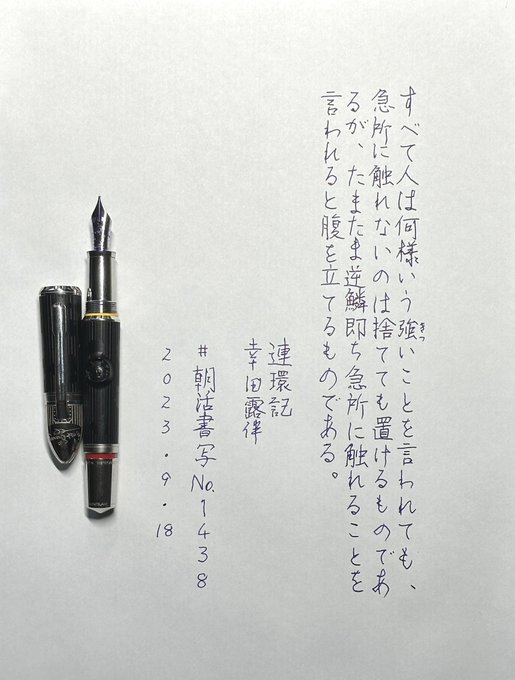 すべて人は何様いう強いことを言われても、
きつ
急所に触れないのは捨てても置けるものであ
るが、たまたま逆鱗即ち急所に触れることを
言われると腹を立てるものである。
連環記
幸田露伴
#朝活書写No.1438
2023.9.18